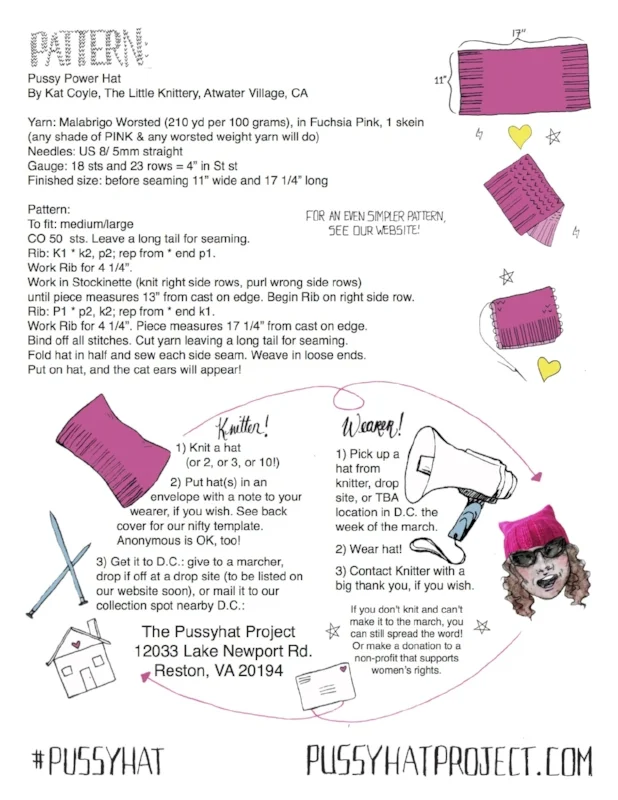 PATTERN:
Pussy Power Hat
By Kat Coyle, The Little Knittery, Atwater Village, CA
Yarn: Malabrigo Worsted (210 yd per 100 grams), in Fuchsia Pink, 1 skein
(any shade of PINK & any worsted weight yarn will do)
Needles: US 8/ 5mm straight
Gauge: 18 sts and 23 rows = 4” in St st
Finished size: before seaming 11” wide and 17 1/4” long
17"
11"
Pattern:
To fit: medium/large
CO 50 sts. Leave a long tail for seaming.
Rib: K1 * k2, p2; rep from * end p1.
Work Rib for 4 1/4”.
Work in Stockinette (knit right side rows, purl wrong side rows)
until piece measures 13” from cast on edge. Begin Rib on right side row.
Rib: P1 * p2, k2; rep from * end k1.
Work Rib for 4 1/4”. Piece measures 17 1/4” from cast on edge.
Bind off all stitches. Cut yarn leaving a long tail for seaming.
Fold hat in half and sew each side seam. Weave in loose ends.
Put on hat, and the cat ears will appear!
FOR AN EVEN SIMPLER PATTERN,
SEE OUR WEBSITE!
Knitter!
1) Knit a hat
(or 2, or 3, or 10!)
2) Put hat(s) in an
envelope with a note to your
wearer, if you wish. See back
cover for our nifty template.
Anonymous is OK, too!
3) Get it to D.C.: give to a marcher,
drop if off at a drop site (to be listed on
our website soon), or mail it to our
collection spot nearby D.C.:
The Pussyhat Project
12033 Lake Newport Rd.
Reston, VA 20194
Wearer!
1) Pick up a
hat from
knitter, drop
site, or TBA
location in D.C. the
week of the march.
2) Wear hat!
3) Contact Knitter with a
big thank you, if you wish.
If you don't knit and can't
make it to the march, you
can still spread the word!
Or make a donation to a
non-profit that supports
women's rights.
#PUSSYHAT
PUSSYHATPROJECT.COM